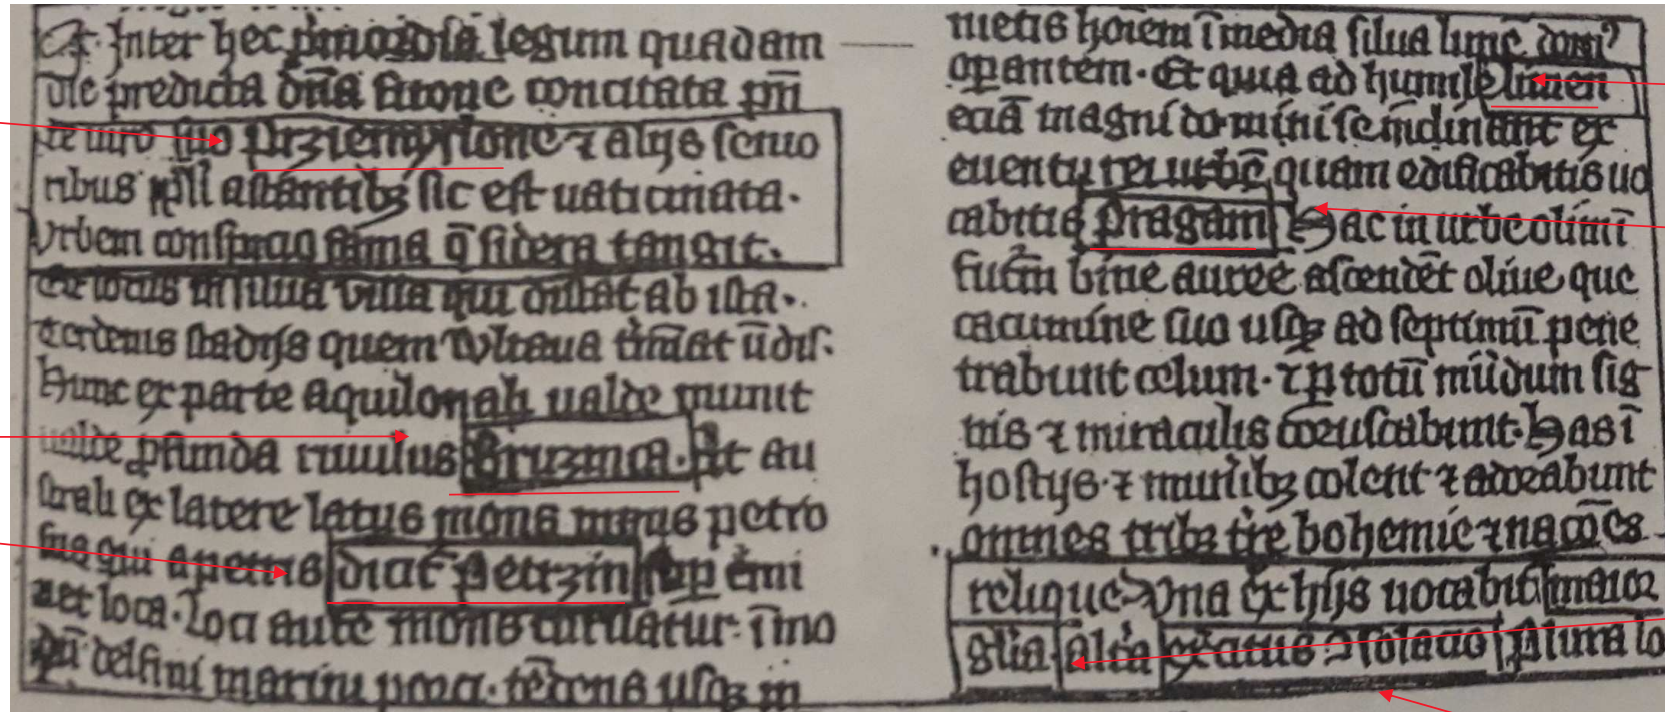 Inter hec p̄mordia legum quadam
die predicta dn̄a fitone concitata pn̄
te uiro suo prziemyslone ⁊ alijs senio
ribus ppl̄i astantibꝫ sic est uaticinata.
Vrbem conspicio fama q̄ sidera tangit.
Est locus in silua villa qui distat ab ista.
terdenis stadijs quem Wltaua t̄mīat ūdis.
Hunc ex parte aquilonali ualde munit
ualde ꝓfunda riuulus Bruznica. At au
strali ex latere latus mons
sus qui a petris dicit̄ Petrzin
net loca. Loci aut̄e mons curuatur. ī mo
dū delfini marini porci. tēdens usqꝫ in
metis hoīem ī media silua limē domꝰ
oꝑantem. Et quia ad humile limen
eciā magni domini se inclinant ex
euentu rei urbē quam edificabitis uo
cabitis Pragam Hac in urbe olim ī
futm̄ bine auree ascendēt oliue que
cacumine suo usqꝫ ad septimū pene
trabunt celum. ⁊ ꝑ totū mūdum sig
nis ⁊ miraculis coruscabunt. Has ī
hostijs ⁊ munībꝫ colent ⁊ adorabunt
omnes tribꝫ tr̄e bohemie ⁊ nacōes
relique Vna ex hijs uocabit̄ maior
gl̄ia. alt̄a ex̄citus ꝯsolacio Plura lo